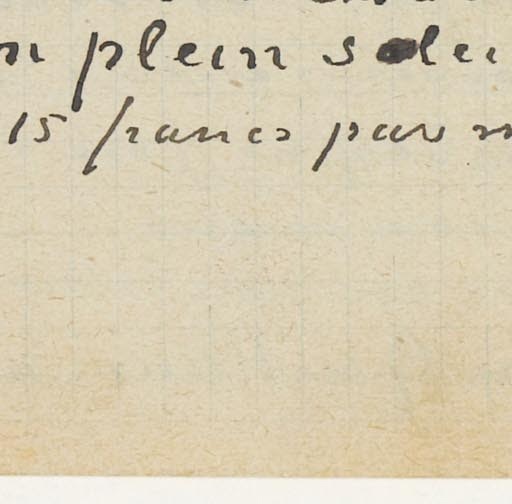 n plein solei
15 francs par m